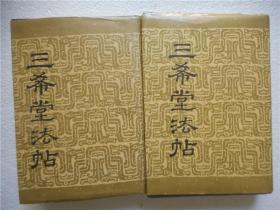 三希堂法帖
三希堂法帖